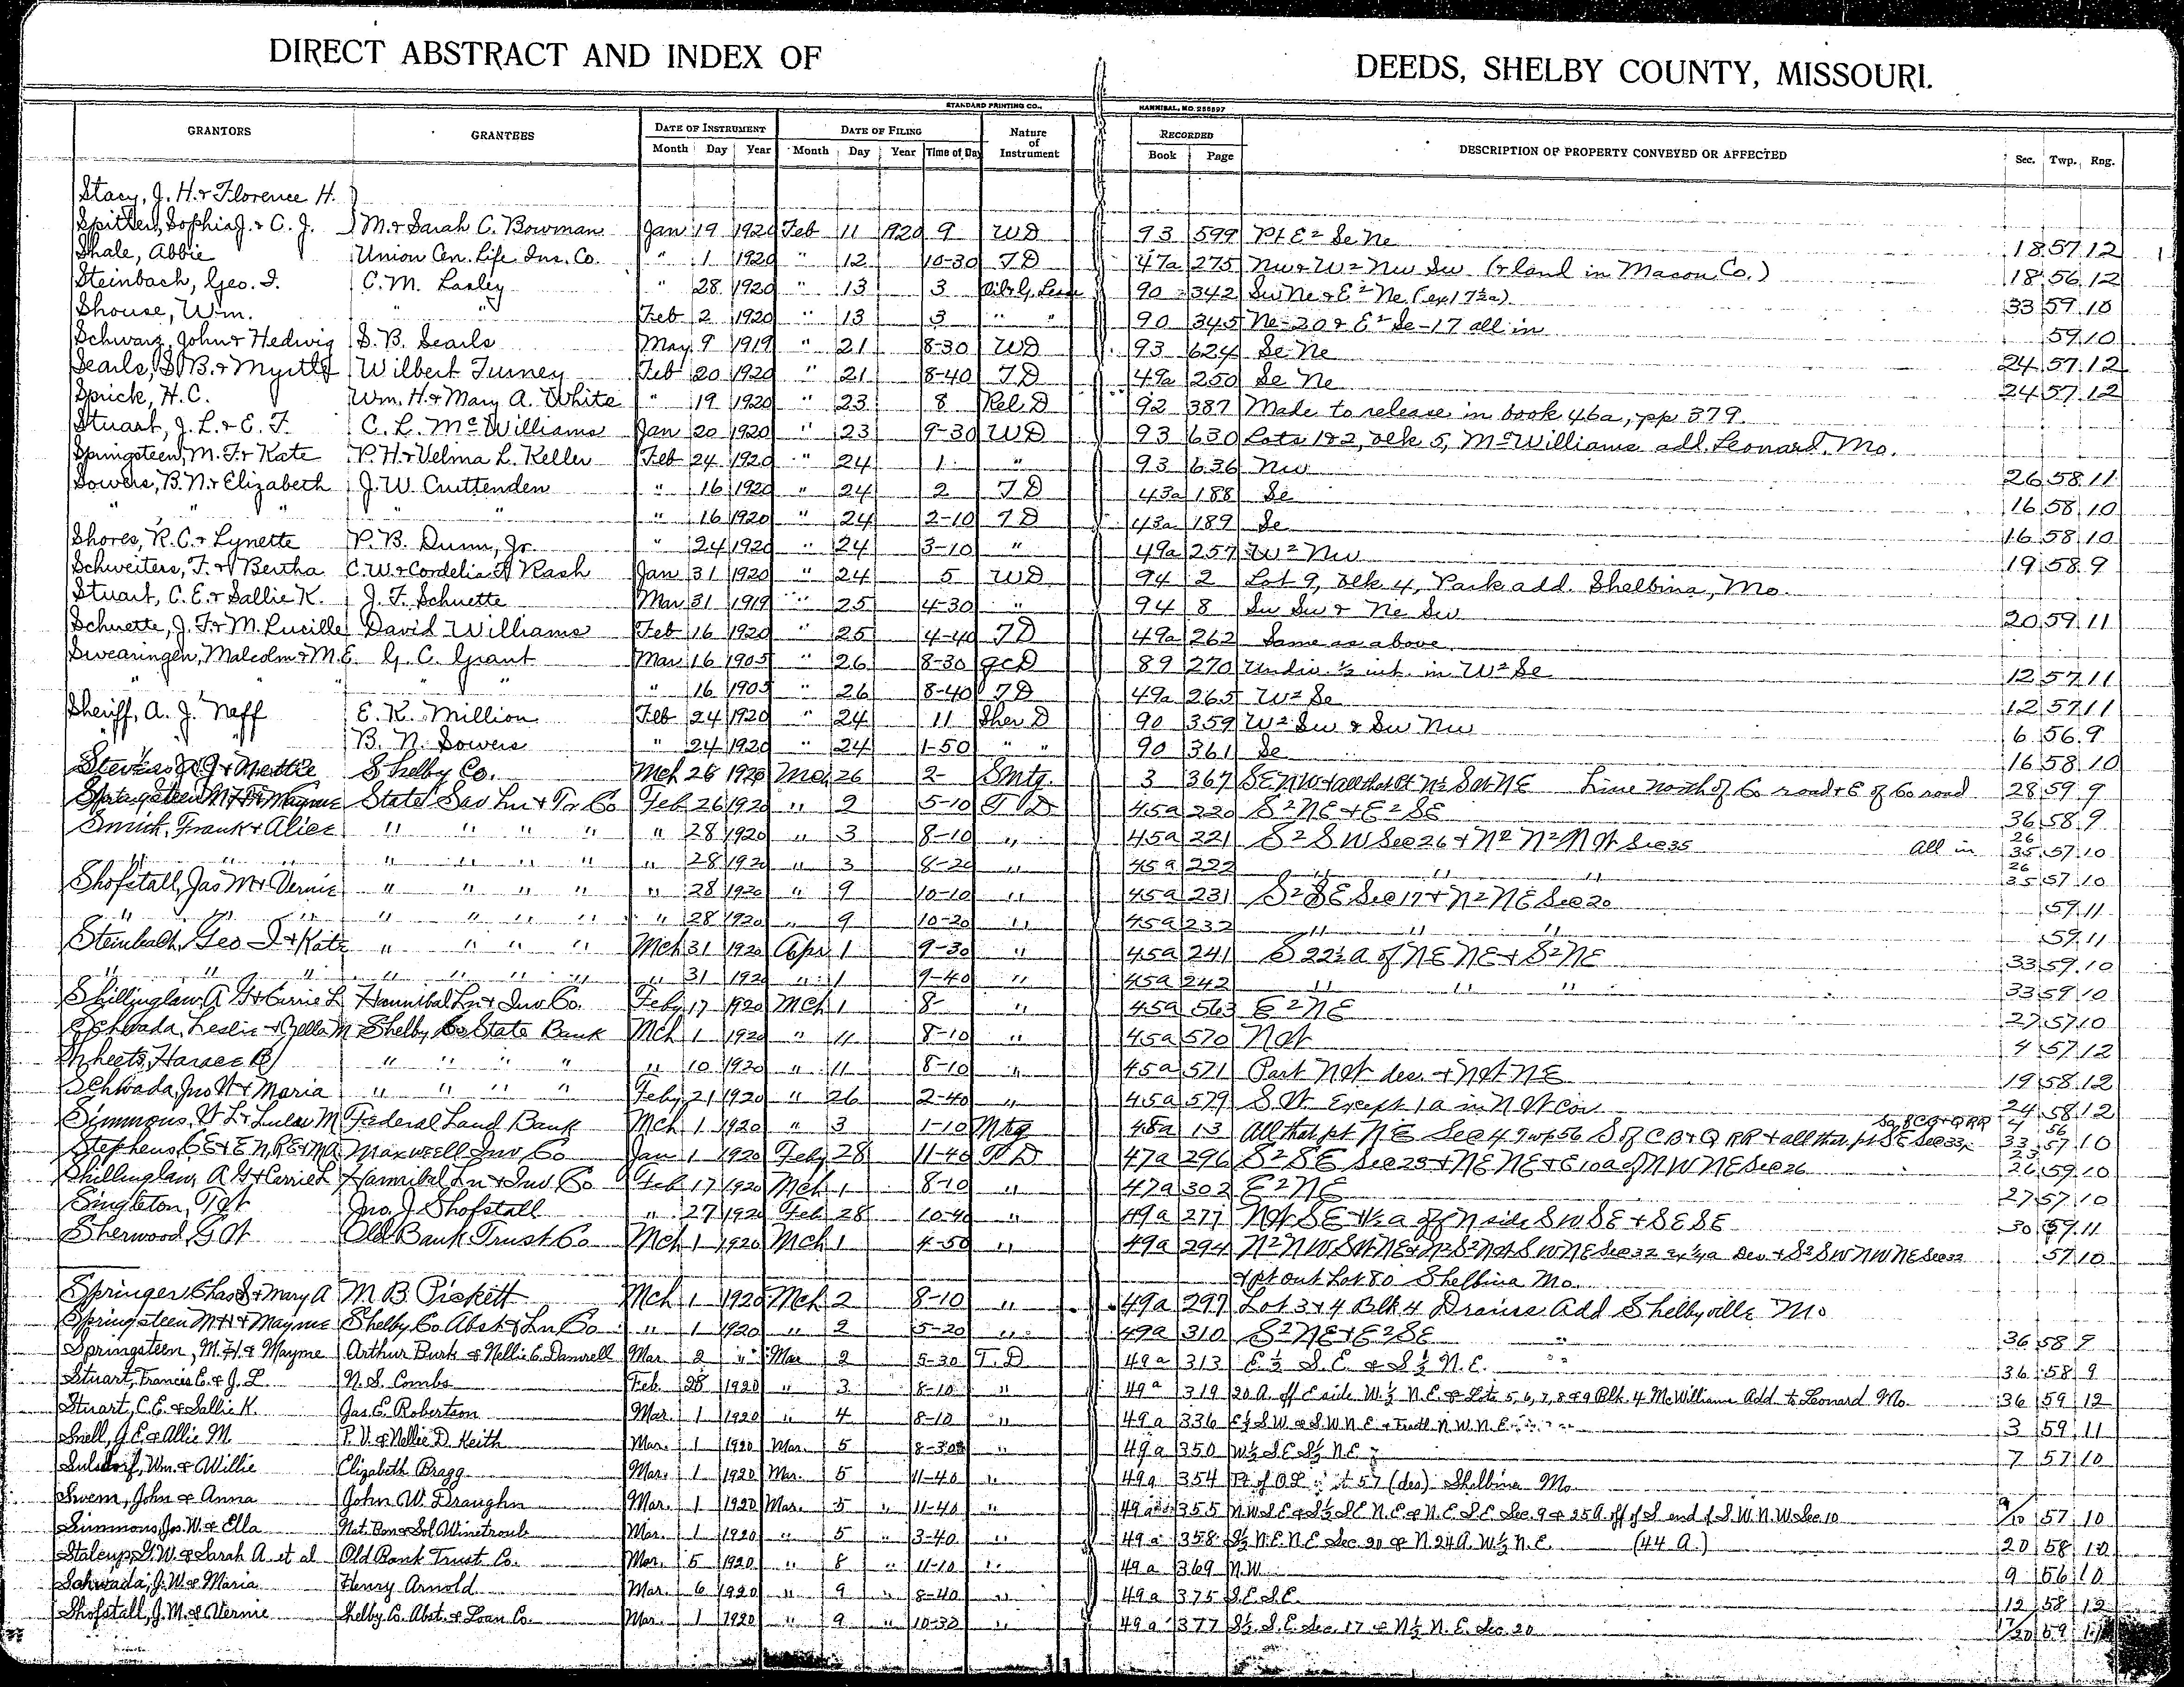 DIRECT ABSTRACT AND INDEX OF DEEDS, SHELBY COUNTY, MISSOURI.
STANDARD PRINTING CO., HANNIBAL, MO. 255597
GRANTORS GRANTEES DATE OF INSTRUMENT DATE OF FILING Nature of Instrument RECORDED DESCRIPTION OF PROPERTY CONVEYED OR AFFECTED Sec. Twp. Rng.
Month Day Year Month Day Year Time of Day Book Page
Stacy, J. H. & Florence H.
Spitler, Sophia J. & C. J. M. & Sarah C. Bowman Jan 19 1920 Feb 11 1920 9 WD 93 599 Pt E² Se Ne 18 57 12
Shale, Abbie Union Cen. Life Ins. Co. " 1 1920 " 12 10-30 TD 47a 275 Nw & W² Nw Sw (& land in Macon Co.) 18 56 12
Steinbach, Geo. I. C. M. Lasley " 28 1920 " 13 3 Oil & G. Lease 90 342 Sw Ne & E² Ne (ex 17½a) 33 59 10
Shouse, Wm. " " Feb 2 1920 " 13 3 " " 90 345 Ne-20 & E² Se-17 all in 59 10
Schwarz, John & Hedwig S. B. Searls May 9 1919 " 21 8-30 WD 93 624 Se Ne 24 57 12
Searls, S. B. & Myrtle Wilbert Turney Feb 20 1920 " 21 8-40 TD 49a 250 Se Ne 24 57 12
Sprick, H. C. Wm. H. & Mary A. White " 19 1920 " 23 8 Rel D 92 387 Made to release in book 46a, pp 379.
Stuart, J. L. & E. F. C. L. McWilliams Jan 20 1920 " 23 9-30 WD 93 630 Lots 1 & 2, blk 5, McWilliams add. Leonard, Mo.
Springsteen, M. F. & Kate P. H. & Velma L. Keller Feb 24 1920 " 24 1 " 93 636 Nw 26 58 11
Sowers, B. N. & Elizabeth J. W. Cruttenden " 16 1920 " 24 2 TD 43a 188 Se 16 58 10
" " " " " 16 1920 " 24 2-10 TD 43a 189 Se 16 58 10
Shores, R. C. & Lynette P. B. Dunn, Jr. " 24 1920 " 24 3-10 " 49a 257 W² Nw 19 58 9
Schweiters, F. & Bertha C. W. & Cordelia A. Rash Jan 31 1920 " 24 5 WD 94 2 Lot 9, blk 4, Park add. Shelbina, Mo.
Stuart, C. E. & Sallie K. J. F. Schuette Mar 31 1919 " 25 4-30 " 94 8 Sw Sw & Ne Sw 20 59 11
Schuette, J. F. & M. Lucille David Williams Feb 16 1920 " 25 4-40 TD 49a 262 Same as above
Swearingen, Malcolm & M. E. G. C. Grant Mar 16 1905 " 26 8-30 QCD 89 270 Undiv. ½ int. in W² Se 12 57 11
" " " " 16 1905 " 26 8-40 TD 49a 265 W² Se 12 57 11
Sheriff, A. J. Neff E. K. Million Feb 24 1920 " 24 11 Sher D 90 359 W² Sw & Sw Nw 6 56 9
" " B. N. Sowers " 24 1920 " 24 1-50 " " 90 361 Se 16 58 10
& Nettie Shelby Co. Mch 26 1920 Mch 26 2- Smtg. 3 367 SE NW & all that Pt N½ SW NE Line north of Co road & E of Co road 28 59 9
Springsteen M H & Mayme State Sav Ln & Tr Co Feb 26 1920 " 2 5-10 T D 45a 220 S² NE & E² SE 36 58 9
Smith, Frank & Alice " " " " " 28 1920 " 3 8-10 " 45a 221 S² SW Sec 26 & N² N² NW Sec 35 all in 26 35 57 10
" " " " " " " " 28 1920 " 3 8-20 " 45a 222 " " 26 35 57 10
Shofstall, Jas M & Vernie " " " " " 28 1920 " 9 10-10 " 45a 231 S² SE Sec 17 & N² NE Sec 20 59 11
" " " " " " " 28 1920 " 9 10-20 " 45a 232 " " " 59 11
Steinbach, Geo I & Kate " " " " Mch 31 1920 Apr 1 9-30 " 45a 241 S 22½ a of NE NE & S² NE 33 59 10
" " " " " " " " 31 1920 " 1 9-40 " 45a 242 " " " 33 59 10
Shillinglaw, A G & Carrie L Hannibal Ln & Inv Co. Feby 17 1920 Mch 1 8- " 45a 563 E² NE 27 57 10
Schwada, Leslie & Zella M Shelby Co State Bank Mch 1 1920 " 11 8-10 " 45a 570 NW 4 57 12
Sheets, Horace B " " " " " 10 1920 " 11 8-10 " 45a 571 Part NW des. & NW NE 19 58 12
Schwada, Jno W & Maria " " " " Feby 21 1920 " 26 2-40 " 45a 579 SW Except 1a in NW Cor 24 58 12
Simmons, W L & Lulu M Federal Land Bank Mch 1 1920 " 3 1-10 Mtg 48a 13 All that pt NE Sec 4 Twp 56 S of CB & Q RR & all that pt SE Sec 33, So. of CB & Q RR 4 56 33 57 10
Stephens, C E & E N, R E & M A Maxwell Inv Co Jan 1 1920 Feby 28 11-40 T D 47a 296 S² SE Sec 23 & NE NE & E 10a of NW NE Sec 26 23 26 59 10
Shillinglaw, A G & Carrie L Hannibal Ln & Inv Co Feb 17 1920 Mch 1 8-10 " 47a 302 E² NE 27 57 10
Singleton, T W Jno. J Shofstall " 27 1920 Feb 28 10-40 " 49a 277 NW SE & ½ a off N side SW SE & SE SE 30 59 11
Sherwood, G W Old Bank Trust Co Mch 1 1920 Mch 1 4-50 " 49a 294 N² NW, SW NE & N² S² NW & SW NE Sec 32 ex ¼ a Des & S² SW NW NE Sec 32 57 10
& pt out Lot 80 Shelbina Mo.
Springer, Chas S & Mary A M B Pickett Mch 1 1920 Mch 2 8-10 " 49a 297 Lot 3 & 4 Blk 4 Drains Add Shellbyville Mo
Springsteen M H & Mayme Shelby Co Abst & Ln Co " 1 1920 " 2 5-20 " 49a 310 S² NE & E² SE " 36 58 9
Springsteen, M. H. & Mayme Arthur Burk & Nellie E. Damrell Mar 2 " Mar 2 5-30 T. D 49a 313 E. ½ S. E. & S ½ N. E. " 36 58 9
Stuart, Francis E. & J. L. N. S. Combs Feb 28 1920 " 3 8-10 " 49a 319 20 A. off E side W ½ N. E. & Lots 5, 6, 7, 8 & 9 Blk. 4 McWilliams Add to Leonard Mo. 36 59 12
Stuart, C. E. & Sallie K. Jas. E. Robertson Mar. 1 1920 " 4 8-10 " 49a 336 E½ S W. & S. W. N. E. & Fractl. N. W. N. E. 3 59 11
Snell, J. E. & Allie M. P. V. & Nellie D. Keith Mar. 1 1920 Mar. 5 8-30 " 49a 350 W½ S E S½ N. E. 7 57 10
Sulsdorf, Wm. & Willie Elizabeth Bragg Mar. 1 1920 Mar. 5 11-40 " 49a 354 Pt of O. L. 57 (des) Shelbina Mo.
Swem, John & Anna John W. Draughn Mar. 1 1920 Mar. 5 " 11-40 " 49a 355 N. W. S. E & S½ S. E. N. E. & N. E. S. E. Sec. 9 & 25 A. off of S. end of S. W. N. W. Sec. 10 9/10 57 10
Simmons, Jos. W. & Ella Nat. Ron & Sol Winetroub Mar. 1 1920 " 5 " 3-40 " 49a 358 S½ N. E. N. E. Sec. 20 & N. 24 A. W½ N. E. (44 A.) 20 58 10
Stalcup, G. W. & Sarah A. et al Old Bank Trust Co. Mar. 5 1920 " 8 " 11-10 " 49a 369 N. W. 9 56 10
Schwada, J. W. & Maria Henry Arnold Mar. 6 1920 " 9 " 8-40 " 49a 375 S. E. S. E. 12 58 12
Shofstall, J. M. & Vernie Shelby Co. Abst. & Loan Co. Mar. 1 1920 " 9 " 10-30 " 49a 377 S½ S. E. Sec. 17 & N½ N. E. Sec. 20 17/20 59 11